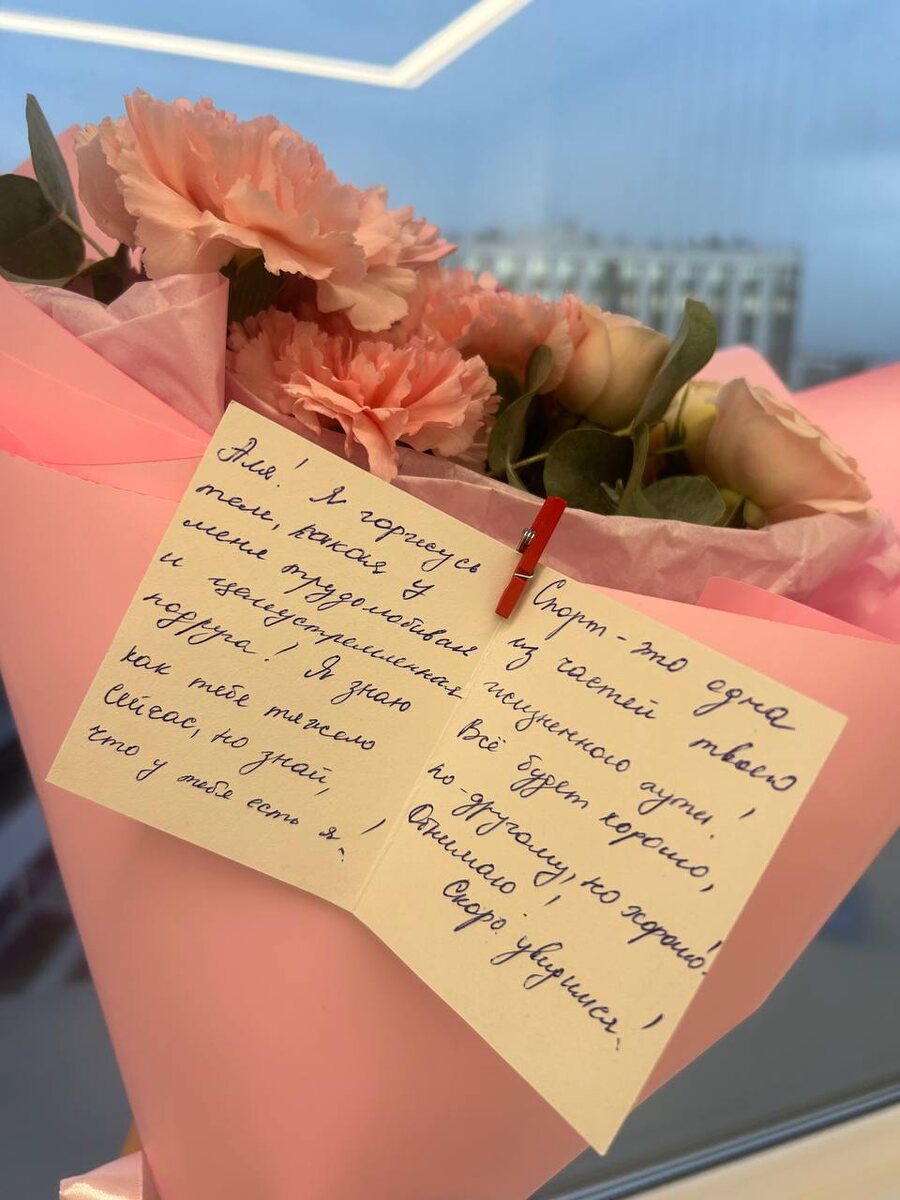 Аля! Я горжусь
тем, какая у
меня трудолюбивая
и целеустремленная
подруга! Я знаю
как тебе тяжело
сейчас, но знай,
что у тебя есть я!
Спорт - это одна
из частей твоего
жизненного пути!
Всё будет хорошо,
по-другому, но хорошо!
Обнимаю!
Скоро увидимся!